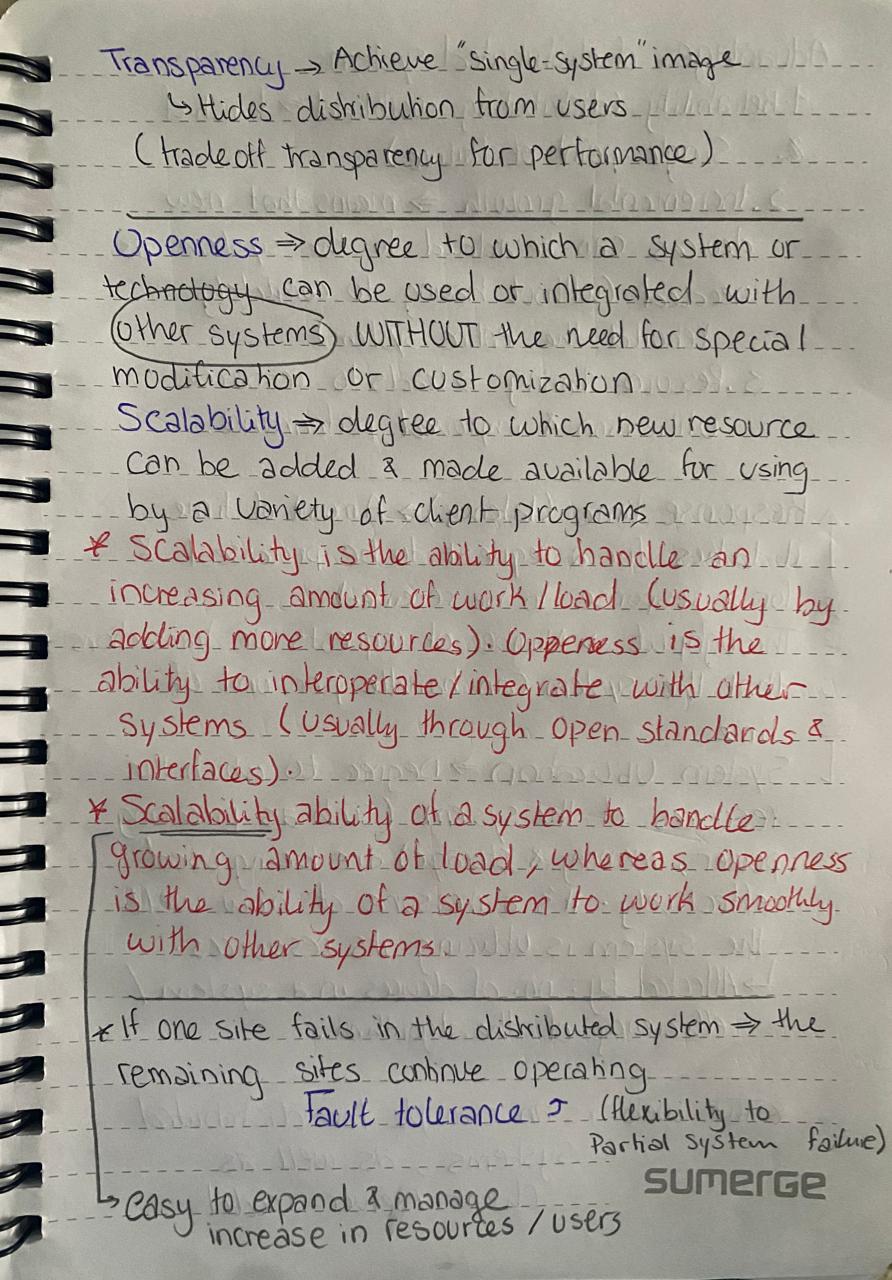 Transparency → Achieve "single-system" image
↳ Hides distribution from users
(tradeoff transparency for performance)
Openness ⇒ degree to which a system or
technology can be used or integrated with
other systems WITHOUT the need for special
modification or customization
Scalability ⇒ degree to which new resource
can be added & made available for using
by a variety of client programs
* Scalability is the ability to handle an
increasing amount of work/load (usually by
adding more resources). Oppeness is the
ability to interoperate/integrate with other
systems (usually through open standards &
interfaces).
* Scalability ability of a system to handle
growing amount of load, whereas openness
is the ability of a system to work smoothly
with other systems.
* If one site fails in the distributed system ⇒ the
remaining sites continue operating
Fault tolerance (flexibility to
Partial system failure)
sumerge
↳ easy to expand & manage
increase in resources / users